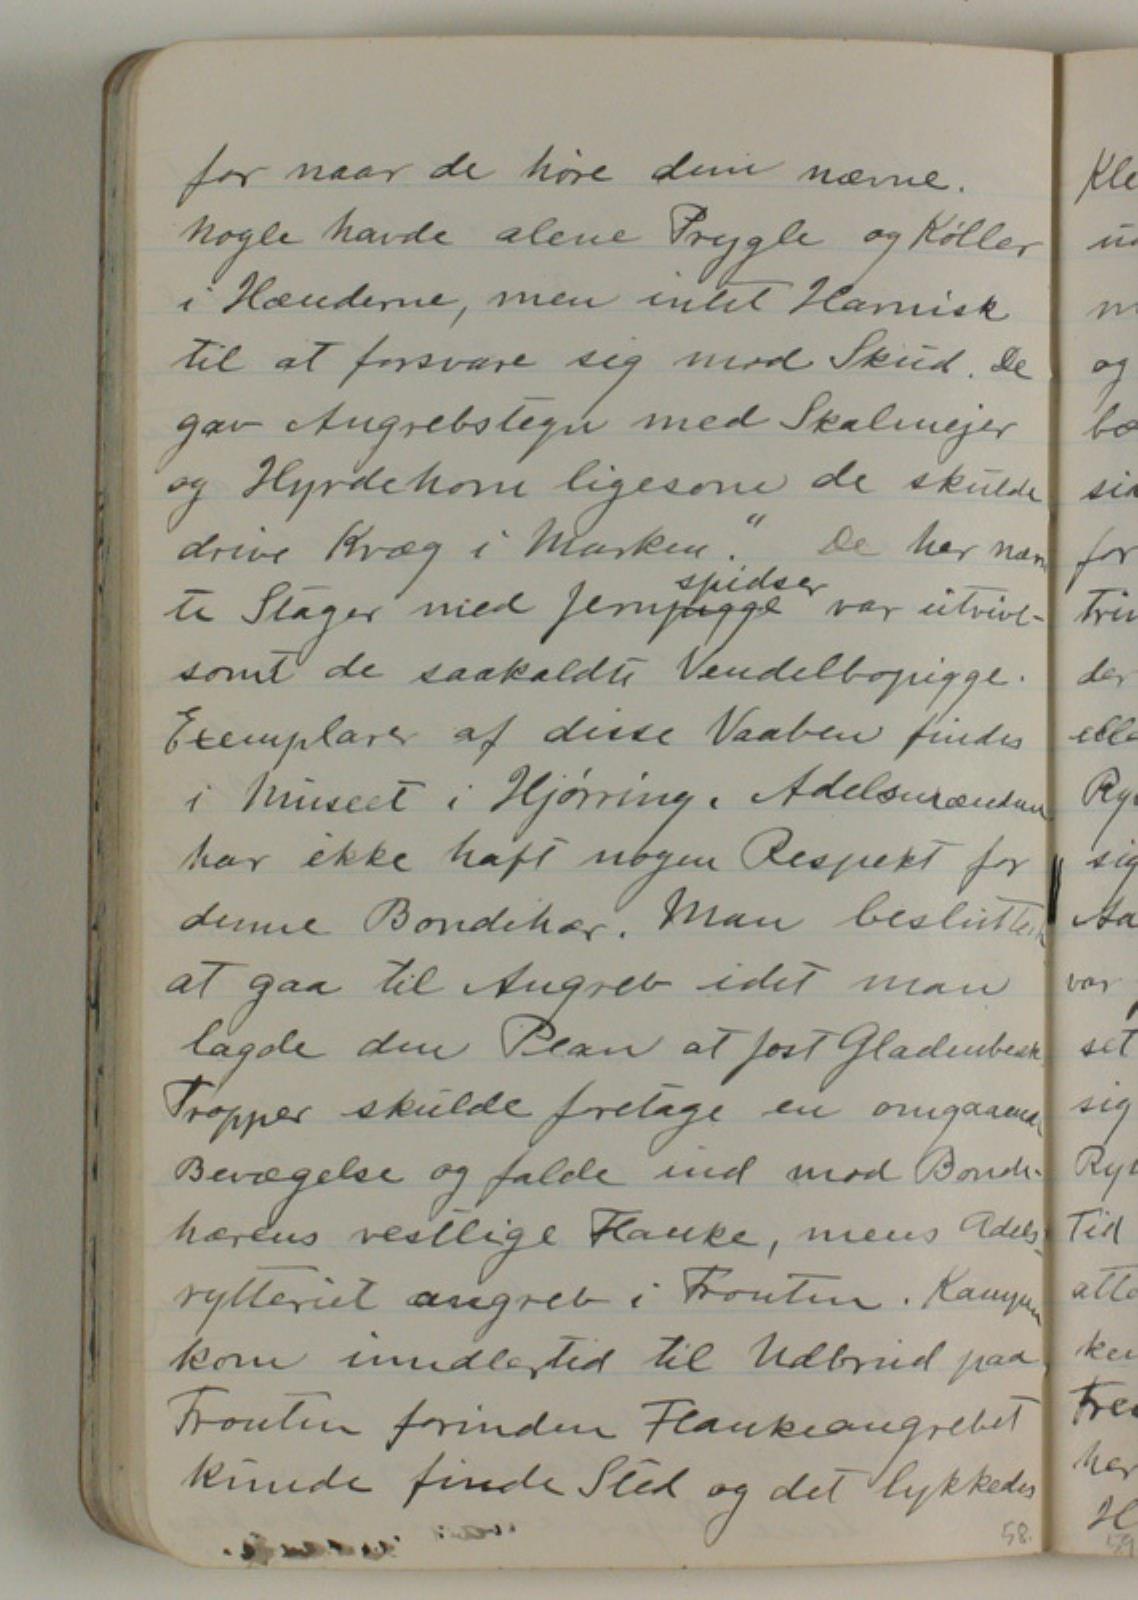 for naar de høre dem nævne.
Nogle havde alene Prygle og Køller
i Hænderne, men intet Harnisk
til at forsvare sig mod Skud. De
gav Angrebstegn med Skalmejer
og Hyrdehorn ligesom de skulde
drive Kvæg i Marken." De her næv
te Stager med Jernpigge spidser var utvivl-
somt de saakaldte Vendelbopigge.
Exemplarer af disse Vaaben findes
i Museet i Hjørring. Adelsmændene
har ikke haft nogen Respekt for
denne Bondehær. Man beslutted
at gaa til Angreb idet man
lagde den Plan at Jost
Tropper skulde foretage en omgaaende
Bevægelse og falde ind mod Bonde-
hærens vestlige Flanke, mens Adels-
rytteriet angreb i Fronten. Kampen
kom imidlertid til Udbrud paa
Fronten forinden Flankeangrebet
kunde finde Sted og det lykkedes
58.
Kle
og
sig
for
der
sig
var
set
sig
Tid
her
H
59